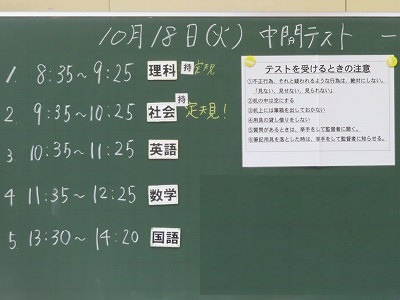 10月18日(火) 中間テスト 一
1. 8:35～9:25 理科 持 定規
2 9:35～10:25 社会 持 定規!
3 10:35～11:25 英語
4 11:35～12:25 数学
5. 13:30～14:20 国語
テストを受けるときの注意
①不正行為、それと疑われるような行為は、絶対にしない。
「見ない、見せない、見られない」
②机の中は空にする
③机上には筆箱を出しておかない
④用具の貸し借りをしない
⑤質問があるときは、挙手をして監督者に聞く。
⑥筆記用具を落とした時は、挙手をして監督者に知らせる。